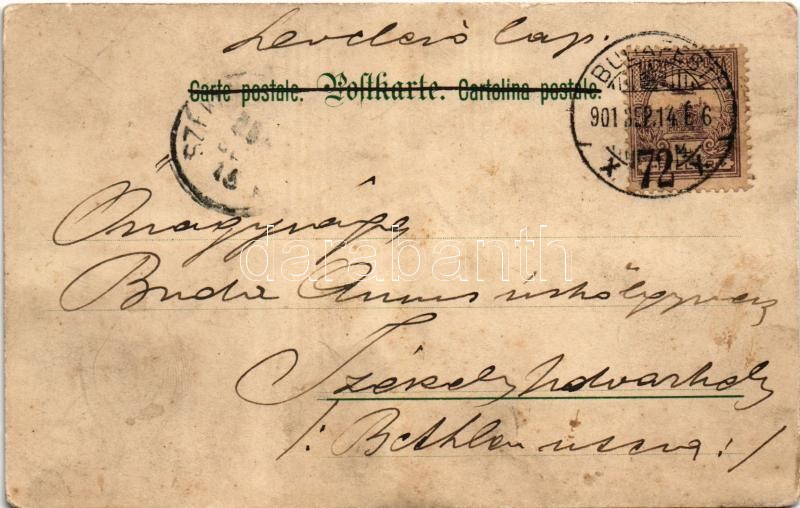 Levelező lap.
Carte postale. Postkarte. Cartolina postale.
BUDAPEST
901 SEP. 14 É 6
72
SZÉ
Őnagysága
Buda Annus
Székely Udvarhely
/: Bethlen utcza :/
darabanth